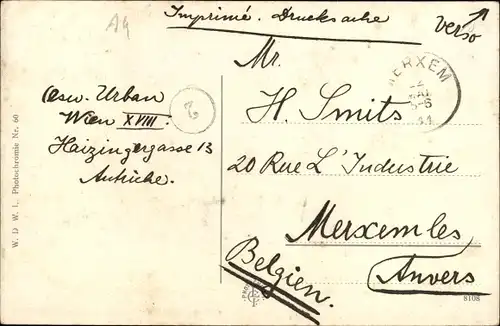 A4
Imprimé. Drucksache
Verso
Mr.
MERXEM
5-6
Osw. Urban
Wien XVIII.
Haizingergasse 13
Autriche.
2
H. Smits
20 Rue L'Industrie
Merxem les
Anvers
Belgien.
W. D. W. I., Photochromie Nr. 60
8108